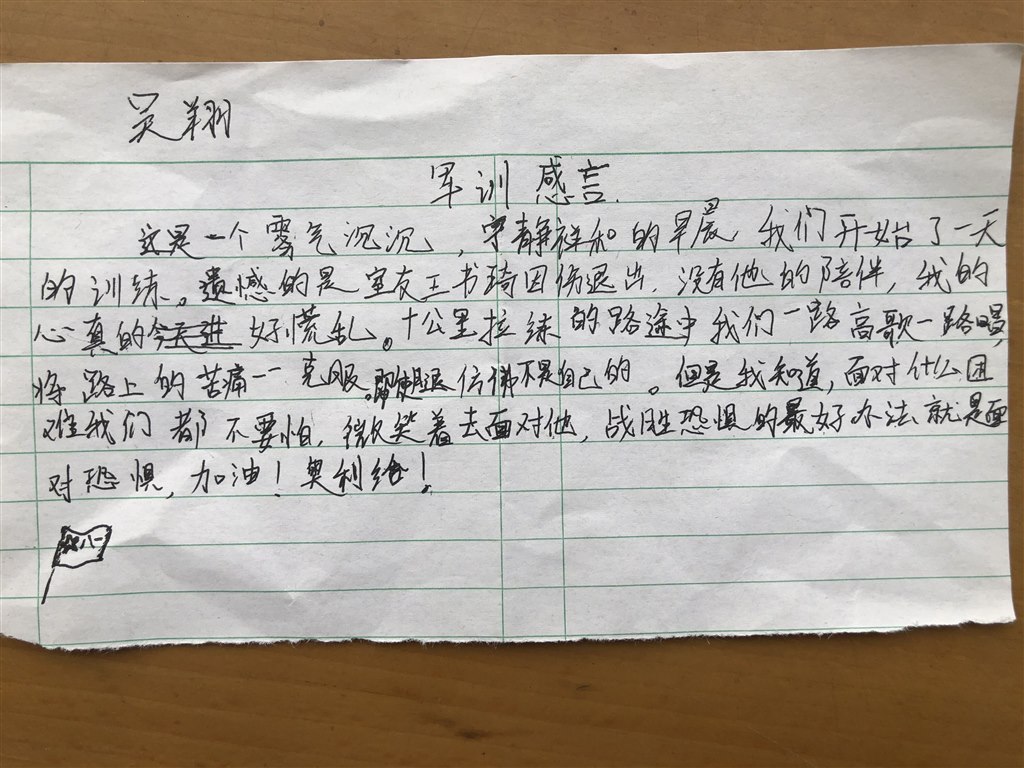 吴翔
军训感言.
这是一个雾气沉沉,宁静祥和的早晨 我们开始了一天
的训练。遗憾的是室友王书琦因伤退出,没有他的陪伴,我的
心真的今天进好慌乱。十公里拉练的路途中我们一路高歌一路唱,
将路上的苦痛一一克服。即使腿仿佛不是自己的。但是我知道,面对什么困
难我们都不要怕,微笑着去面对他,战胜恐惧的最好办法就是面
对恐惧,加油!奥利给!
八一